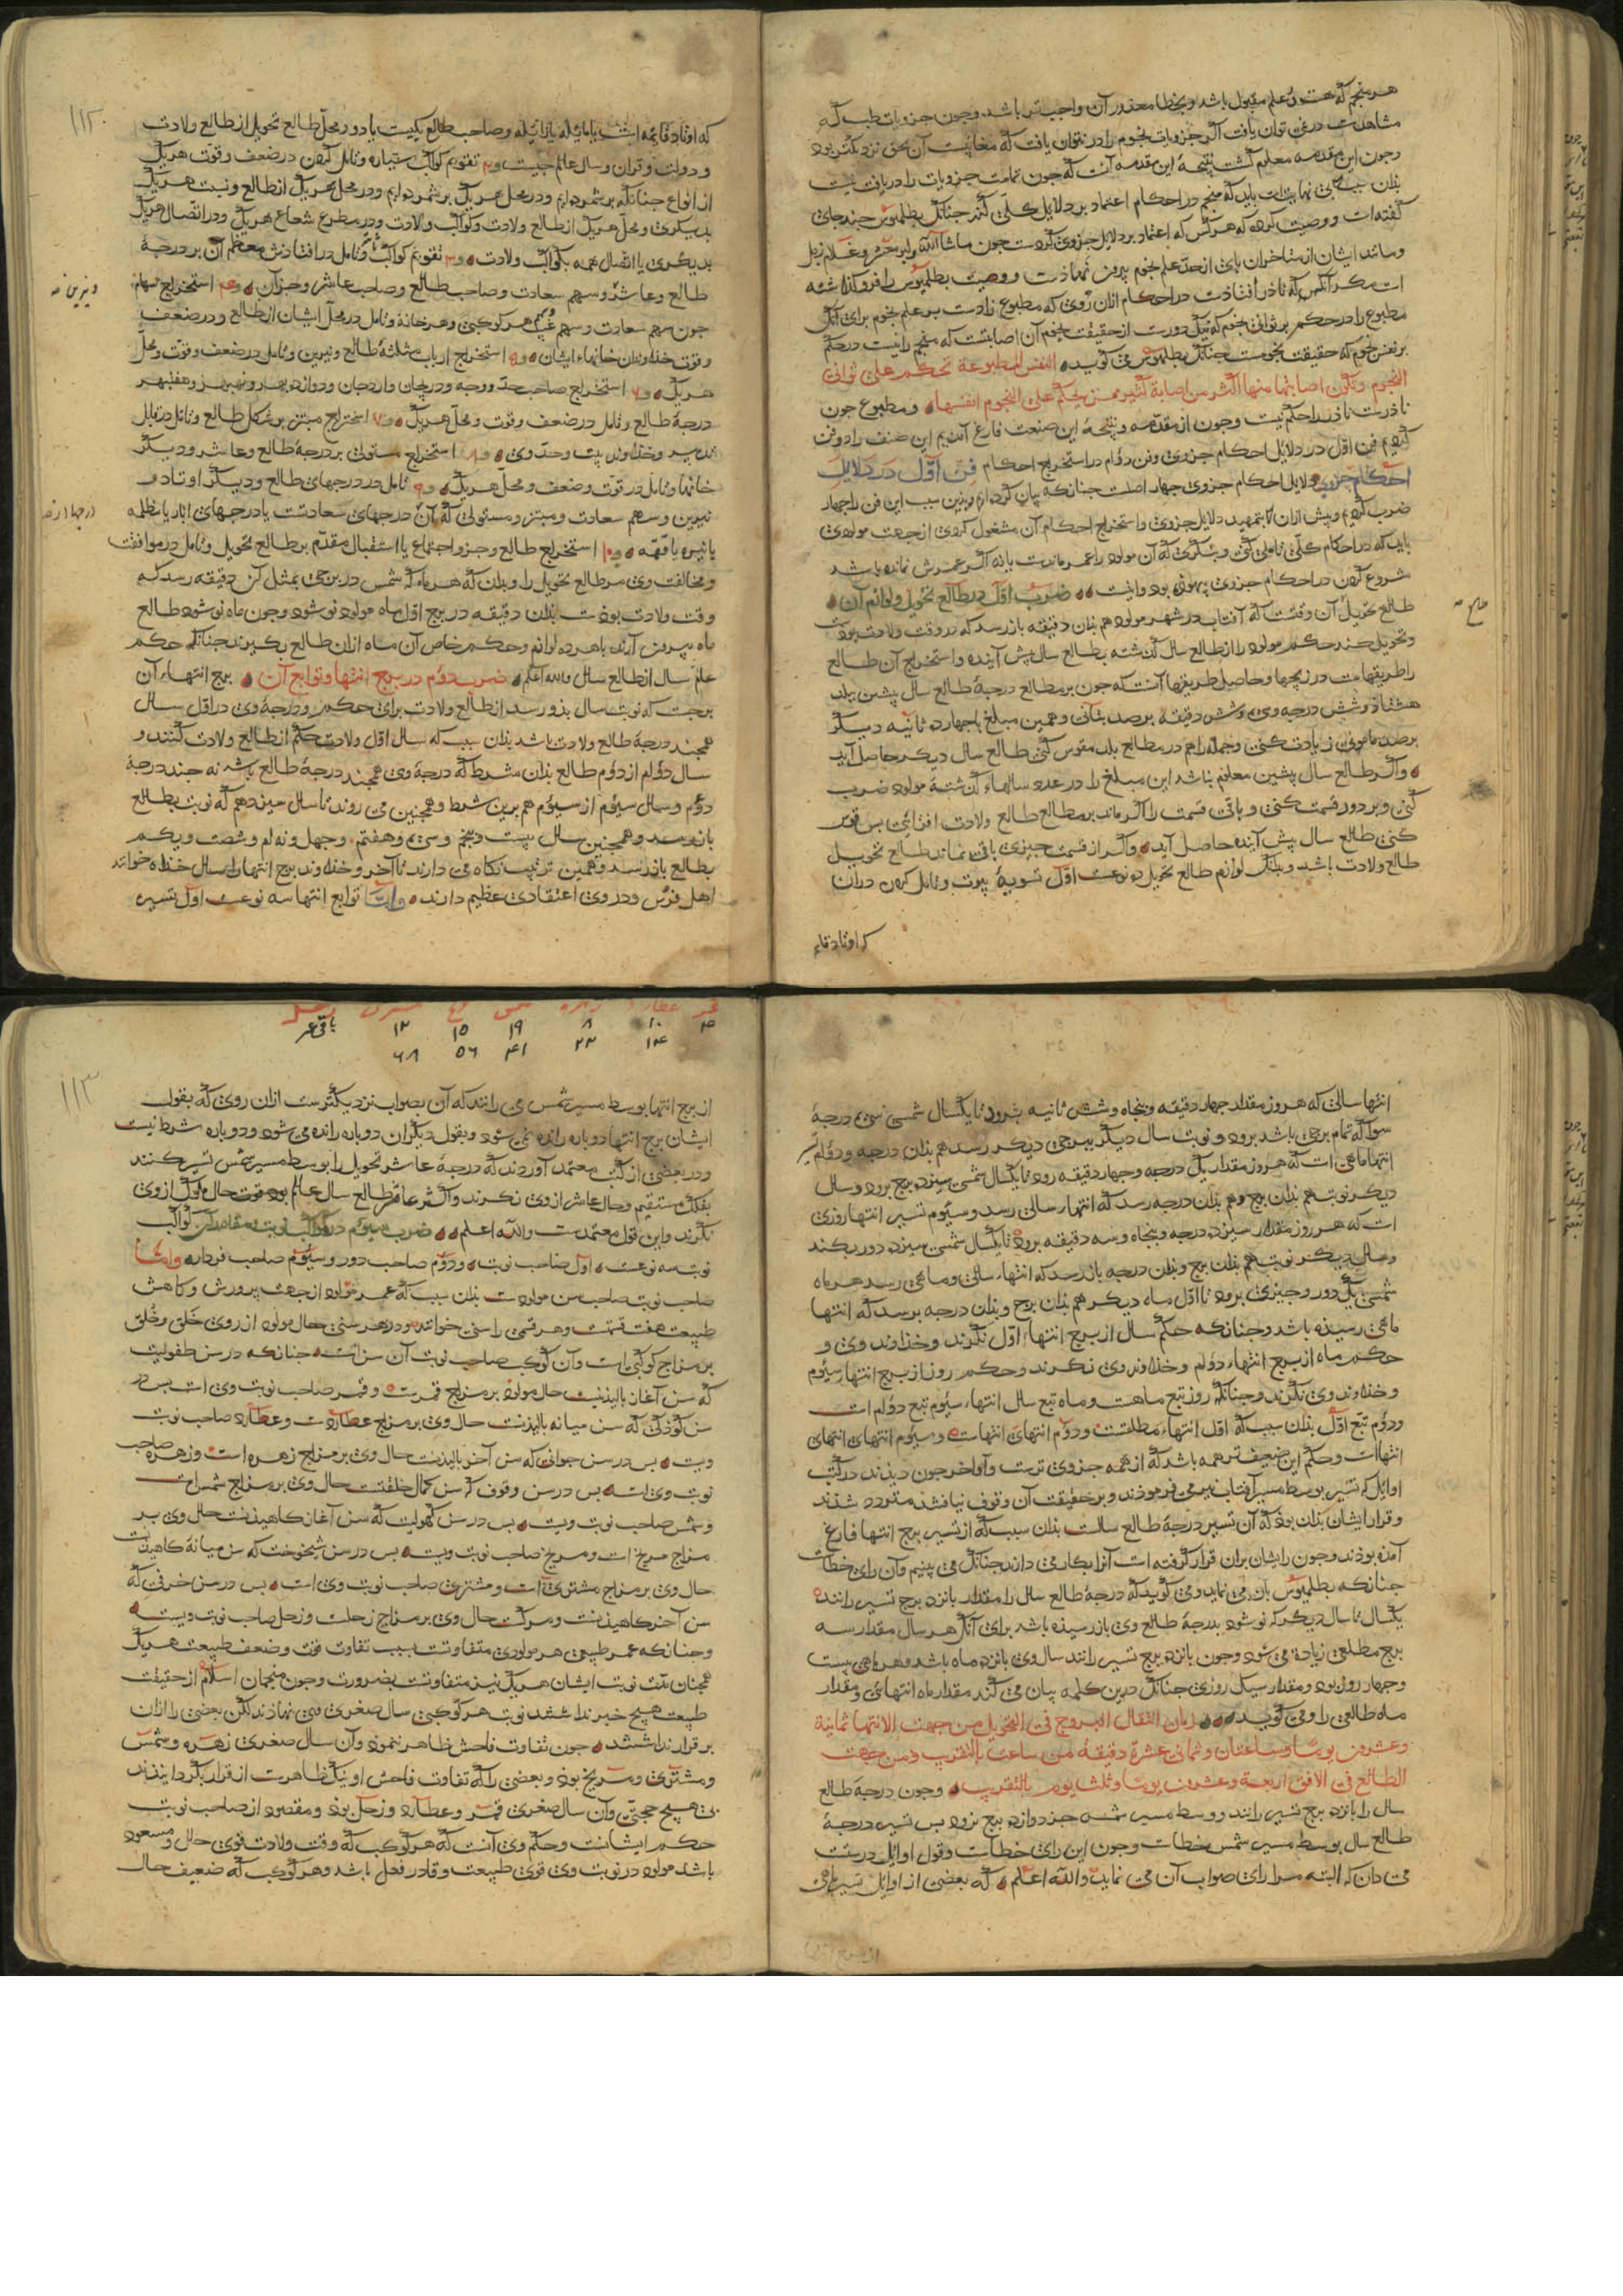 هر منجم که ستوده علم مقبول باشد و بخطا معذور آن واجبتر باشد و چون جزویات طب که
مشاهدست در نمی توان یافت اگر جزویات نجوم را در نتوان یافت که مغایبست آن بحق نزدیکتر بود
و چون این مقدمه معلوم گشت نتیجهٔ این مقدمه آنست که چون تمامت جزویات را دریافت نیست
بذان سبب که بی نهایتست باید که منجم در احکام اعتماد بر دلایل کلی کند چنانک بطلمیوس چند جای
گفته است و وصیت کرده که هر کس که اعتماد بر دلایل جزوی کردست چون ما شاالله و ابو معشر و غلام زحل
و مانند ایشان از متاخران پای از حد علم نجوم بیرون نهادست و وصیت بطلمیوس را فرو گذاشته
است مگر آنکس که نادر افتادست در احکام ازان روی که مطبوع زادست بر علم نجوم برای آنک
مطبوع را در حکم بر ثوانی نجوم که نیک دورست از حقیقت نجوم آن اصابتست که منجم را نیست در حکم
بر نفس نجوم که حقیقت نجومست چنانک بطلمیوس می گوید النفس المطبوعة تحکم علی ثوانی
النجوم و یکون اصابتها منها اکثر من اصابة کثیر ممن یحکم علی النجوم انفسها و مطبوع چون
نادرست نادر را حکم نیست و چون از مقدمه و نتیجهٔ این صنعت فارغ آمدیم این صنف را دو فن
کردیم فن اول در دلایل احکام جزوی و فن دوم در استخراج احکام فن اول در دلایل
احکام جزوی دلایل احکام جزوی چهار اصلست چنانکه بیان کرده ایم و بدین سبب این فن را چهار
ضرب کردیم و پیش ازان کا بتمهید دلایل جزوی و استخراج احکام آن مشغول کردی از جهت مولودی
باید که در احکام کلی تاملی کنی و بنگری که آن مولود را عمر ماندست یا نه اگر عمرش نمانده باشد
شروع کردن در احکام جزوی بیهوده بود و اینست ضرب اول در طالع تحویل و لوازم آن
طالع تحویل آن وقتست که آفتاب در شهر مولود هم بذان دقیقه باز رسد که در وقت ولادت بودست
و تحویل کنند حکم مولود را از طالع سال گذشته بطالع سال پیش آینده و استخراج آن طالع
را طریقهاست در زیجها و حاصل طریقها آنست که چون بر مطالع درجهٔ طالع سال پیشین یک
هشتاد و شش درجه و سی و شش دقیقه برصد بتانی و همین مبلغ با چهارده ثانیه دیگر
برصد مامونی زیادت کنی و جمله را هم در مطالع بلد مقوس کنی طالع سال دیگر حاصل آید
و اگر طالع سال پیشین معلوم نباشد این مبلغ را در عدد سالهاء گذشتهٔ مولود ضرب
کنی و بر دور قسمت کنی و باقی قسمت را اگر ماند بر مطالع طالع ولادت افزائی بس قوس
کنی طالع سال پیش آینده حاصل آید و اگر از قسمت چیزی باقی نماند طالع تحویل
طالع ولادت باشد و بدانک لوازم طالع تحویل دو نوعست اول تسویهٔ بیوت و تامل کردن در آن تا
که اوتاد قائم
که اوتاد قایمه است یا مایله یا زایله و صاحب طالع کیست یا دور محل طالع تحویل از طالع ولادت
و دولت و قران و سال عالم چیست و ۲ تقویم کواکب سیاره و تامل کردن در ضعف و قوت هر یک
از انواع چنانکه بر شمرده ایم و در محل هر یک بر شمرده ایم و در محل هر یک از طالع و نسبت هر یک
بدیگری و محل هر یک از طالع ولادت و کواکب ولادت و در مطرح شعاع هر یک و در اتصال هر یک
بدیگری یا اتصال همه بکواکب ولادت و ۳ تقویم کواکب ثابته و تامل در افتادنش معظم آن بر درجهٔ
طالع و عاشر و سهم سعادت و صاحب طالع و صاحب عاشر و جز آن و ۴ استخراج سهام
چون سهم سعادت و سهم غیب و سهم هر کوکبی و هر خانهٔ و تامل در محل ایشان از طالع و در ضعف
و قوت خداوندان خانهاء ایشان و ۵ استخراج ارباب مثلثهٔ طالع و نیرین و تامل در ضعف و قوت و محل
هر یک و ۶ استخراج صاحب حد و وجه و دریجان و اردجان و دوازده بهر و نه بهر و هفت بهر
درجهٔ طالع و تامل در ضعف و قوت و محل هر یک و ۷ استخراج مبتز بر شکل طالع و تامل در قابل
تدبیر و خداوند بیت و حد وی و ۸ استخراج مستولی بر درجهٔ طالع و عاشر و دیگر
خانها و تامل در قوت و ضعف و محل هر یک و ۹ تامل در درجهای طالع و دیگر اوتاد و
نیرین و سهم سعادت و مبتز و مستولی که آن درجهای سعادتست یا درجهای آبار یا مظلمه
یا نیره یا قتمه و ۱۰ استخراج طالع و جزو اجتماع یا استقبال مقدم بر طالع تحویل و تامل در موافقت
و مخالفت وی مر طالع تحویل را و بدان که هر ماه که شمس در برجی بمثل آن دقیقه رسد که
وقت ولادت بودست بذان دقیقه در برج اول ماه مولود نو شود و چون ماه نو شود طالع
ماه بیرون آرند با هر دو لوازم و حکم خاص آن ماه ازان طالع بگیرند چنانکه حکم
عام سال از طالع سال والله اعلم ضرب دوم در برج انتها و توابع آن برج انتهاء آن
برجست که نوبت سال بذو رسد از طالع ولادت برای حکم و درجهٔ وی در اول سال
همچند درجهٔ طالع ولادت باشد بذان سبب که سال اول ولادت حکم از طالع ولادت کنند و
سال دوم از دوم طالع بذان شرط که درجهٔ وی همچند درجهٔ طالع باشد نه چند درجهٔ
دوم و سال سیوم از سیوم هم برین شرط و همچنین می روند تا سال سیزدهم که نوبت بطالع
باز رسد و همچنین سال بیست و پنجم و سی و هفتم و چهل و نه ام و شصت و یکم
بطالع باز رسد و همین ترتیب نگاه می دارند تا آخر و خداوند برج انتها را سال خداه خوانند
اهل فرس و در وی اعتقادی عظیم دارند و اما توابع انتها سه نوعست اول تسییر
۱۱۲
و نیرین صه
صلح صه
انتها سالی که هر روز مقدار چهار دقیقه و پنجاه و شش ثانیه برود تا یکسال شمسی سی درجهٔ
سوا که تمام برجی باشد برود و نوبت سال دیگر ببرجی دیگر رسد هم بذان درجه و دوم تسییر
انتها ماهی است که هر روز مقدار یک درجه و چهار دقیقه رود تا یکسال شمسی سیزده برج برود و سال
دیگر نوبت هم بذان برج و هم بذان درجه رسد که انتهاء سالی رسد و سیوم تسییر انتها روزی
است که هر روز مقدار سیزده درجه و پنجاه و سه دقیقه برود تا یکسال شمسی سیزده دور بکند
و سال دیگر نوبت هم بذان برج و بذان درجه باز رسد که انتهاء سالی و ماهی رسد هر ماه
شمسی یک دور و چیزی برود تا اول ماه دیگر هم بذان برج و بذان درجه برسد که انتها
ماهی رسیده باشد و چنانکه حکم سال از برج انتهاء اول نگرند و خداوند وی و
حکم ماه از برج انتهاء دوم و خداوند وی نگرند و حکم روز از برج انتهاء سیوم
و خداوند وی نگرند و چنانکه روز تبع ماهست و ماه تبع سال انتهاء سیوم تبع دوم است
و دوم تبع اول بذان سبب که اول انتهاء مطلقست و دوم انتهای انتهاست و سیوم انتهای انتهای
انتهاست و حکم این ضعیف تر همه باشد که از همه جزوی ترست و اواخر چون دیدند در کتب
اوایل که تسییر بوسط مسیر آفتاب نیز می فرمودند و بر حقیقت آن وقوف نیافتند متردد شدند
و قرار ایشان بذان بود که آن تسییر درجهٔ طالع سالست بذان سبب که از تسییر برج انتها فارغ
آمده بودند و چون رای ایشان بران قرار گرفته است آنرا بکار می دارند چنانک می بینیم و آن رای خطاست
چنانکه بطلمیوس باز می نماید و می گوید که درجهٔ طالع سال را مقدار پانزده برج تسییر رانند
یکسال تا سال دیگر که نو شود بدرجهٔ طالع وی باز رسیده باشد برای آنک هر سال مقدار سه
برج مطلعی زیادت می شود و چون پانزده برج تسییر رانند سال وی پانزده ماه باشد و هر ماهی بیست
و چهار روز بود و مقدار سیک روزی چنانک درین کلمه بیان می کند مقدار ماه انتهائی و مقدار
ماه طالعی را و می گوید زمان انتقال البروج فی التحویل من جهت الانتها ثمانیة
و عشرون یوما و ساعتان و ثمانی عشرة دقیقه من ساعت بالتقریب و من جهت
الطالع فی الافق اربعة و عشرون یوما و ثلث یوم بالتقریب و چون درجهٔ طالع
سال را پانزده برج تسییر رانند و وسط مسیر شمس جز دوازده برج نرود بس تسییر درجهٔ
طالع سال بوسط مسیر شمس خطاست و چون این رای خطاست و قول اوایل درستست
می دان که البته مرا رای صواب آن می نماید والله اعلم که بعضی از اوایل تسییر ماهی
قمر عطارد زهره شمس مریخ مشتری زحل
۴ ۱۰ ۸ ۱۹ ۱۵ ۱۲ باقی عمر
۱۴ ۲۲ ۴۱ ۵۶ ۶۸
۱۱۳
از برج انتها بوسط مسیر شمس می رانند که آن بصواب نزدیکترست ازان روی که بقول
ایشان برج انتها دوباره رانده نمی شود و بقول دیگران دوباره رانده می شود و دوباره شرط نیست
و در بعضی از کتب معتمد آوردند که درجهٔ عاشر تحویل را بوسط مسیر شمس تسییر کنند
بفلک مستقیم و حال عاشر از وی نگرند و اگر عاشر طالع سال عالم بود قوت حال ملوک از وی
نگرند و این قول معتمدست والله اعلم ضرب سیوم در کواکب نوبت و مقدار آن کواکب
نوبت سه نوعست اول صاحب نوبت و دوم صاحب دور و سیوم صاحب فردار و اما
صاحب نوبت صاحب سن مولودست بذان سبب که عمر مولود از جهت پرورش و کاهش
طبیعت هفت قسمست و هر قسمی را سنی خوانند و در هر سنی حال مولود از روی خلق و خلق
بر مزاج کوکبی است و آن کوکب صاحب نوبت آن سن است چنانکه در سن طفولیت
که سن آغاز بالیدنست حال مولود بر مزاج قمرست و قمر صاحب نوبت وی است بس در
سن کودکی که سن میانه بالیدنست حال وی بر مزاج عطاردست و عطارد صاحب نوبت
ویست بس در سن جوانی که سن آخر بالیدنست حال وی بر مزاج زهره است و زهره صاحب
نوبت وی است بس در سن وقوف که سن کمال خلقتست حال وی بر مزاج شمس است
و شمس صاحب نوبت ویست بس در سن کهولیت که سن آغاز کاهیدنست حال وی بر
مزاج مریخ است و مریخ صاحب نوبت ویست بس در سن شیخوخت که سن میانهٔ کاهیدنست
حال وی بر مزاج مشتری است و مشتری صاحب نوبت وی است بس در سن خرفی که
سن آخر کاهیدنست و مرگست حال وی بر مزاج زحلست و زحل صاحب نوبت ویست
و چنانکه عمر طبیعی هر مولودی متفاوتست بسبب تفاوت قوت و ضعف طبیعت هر یک
همچنان مدت نوبت ایشان هر یک نیز متفاوتست بضرورت و چون منجمان اسلام از حقیقت
طبیعت هیچ خبر نداشتند نوبت هر کوکبی سال صغری می نهادند لکن بعضی را ازان
بر قرار نداشتند چون تفاوت فاحش ظاهر نمود و آن سال صغری زهره و شمس
و مشتری و مریخ بود و بعضی را که تفاوت فاحش او نیک ظاهرست از قرار بگردانیدند
بی هیچ حجتی و آن سال صغری قمر و عطارد و زحل بود و مقصود از صاحب نوبت
حکم ایشانست و حکم وی آنست که هر کوکب که وقت ولادت قوی حال و مسعود
باشد مولود در نوبت وی قوی طبیعت و قادر فعل باشد و هر کوکب که ضعیف حال